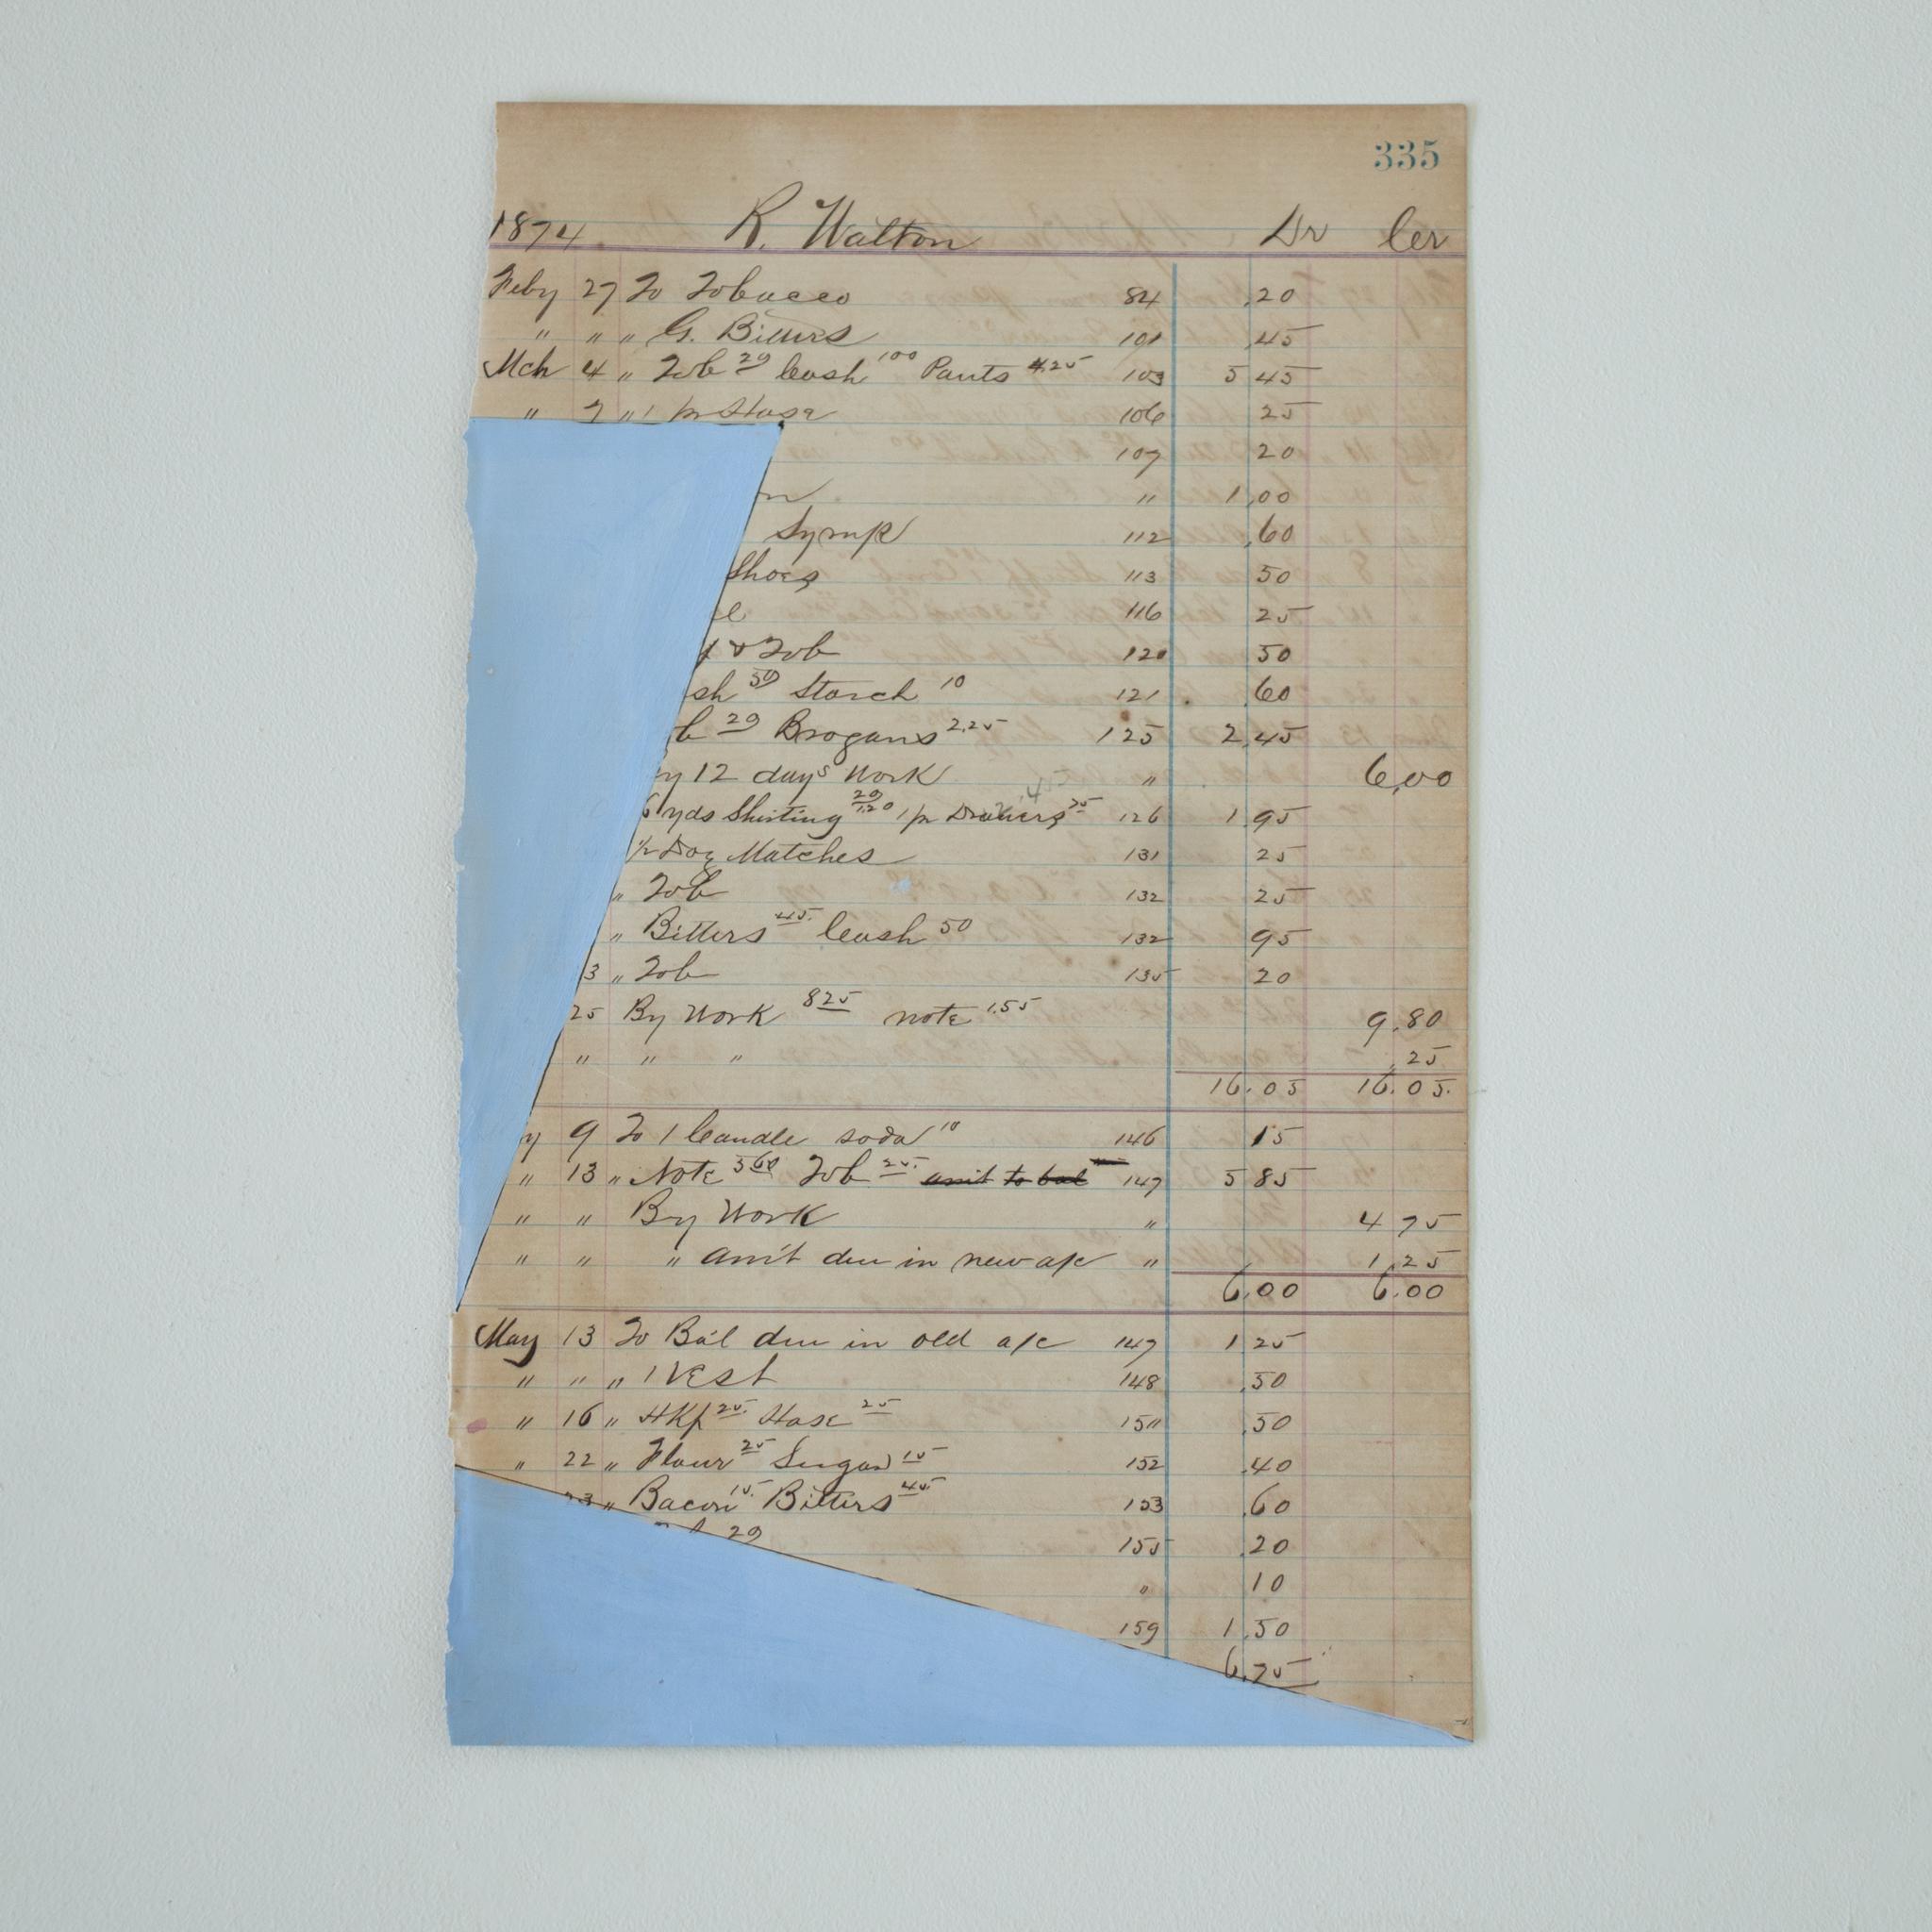 335
1874. R. Walton Dr Cr
Feby 27 To Tobacco 84 .20
" " " G. Bitters 101 .45
Mch 4 " Tob 20 Cash 100 Pants 4.25 103 5 45
" 7 " 1 pr Hose 106 25
107 20
" 1.00
Syrup 112 .60
Shoes 113 50
116 25
& Tob 120 50
sh 50 Starch 10 121 60
b 20 Brogans 2.25 125 2.45
y 12 days Work " 6.00
6 yds Shirting 20 1.20 1 pr Drawers 75 126 1.95
1/2 Doz Matches 131 25
" Tob 132 25
" Bitters 45 Cash 50 132 95
3 " Tob 135 20
25 By Work 825 note 1.55 9.80
" " " .25
16.05 16.05.
y 9 To 1 Candle soda 10 146 15
" 13 " Note 5 60 Tob 25 amt to bal 147 5 85
" " By Work " 4 75
" " " am't due in new a/c " 1.25
6.00 6.00
May 13 To Bal due in old a/c 147 1 25
" " " 1 Vest 148 .50
" 16 " HKf 25 Hose 25 150 .50
" 22 " Flour 25 Sugar 15 152 .40
23 " Bacon 15 Bitters 45 153 .60
20 155 .20
" 10
159 1.50
6.75